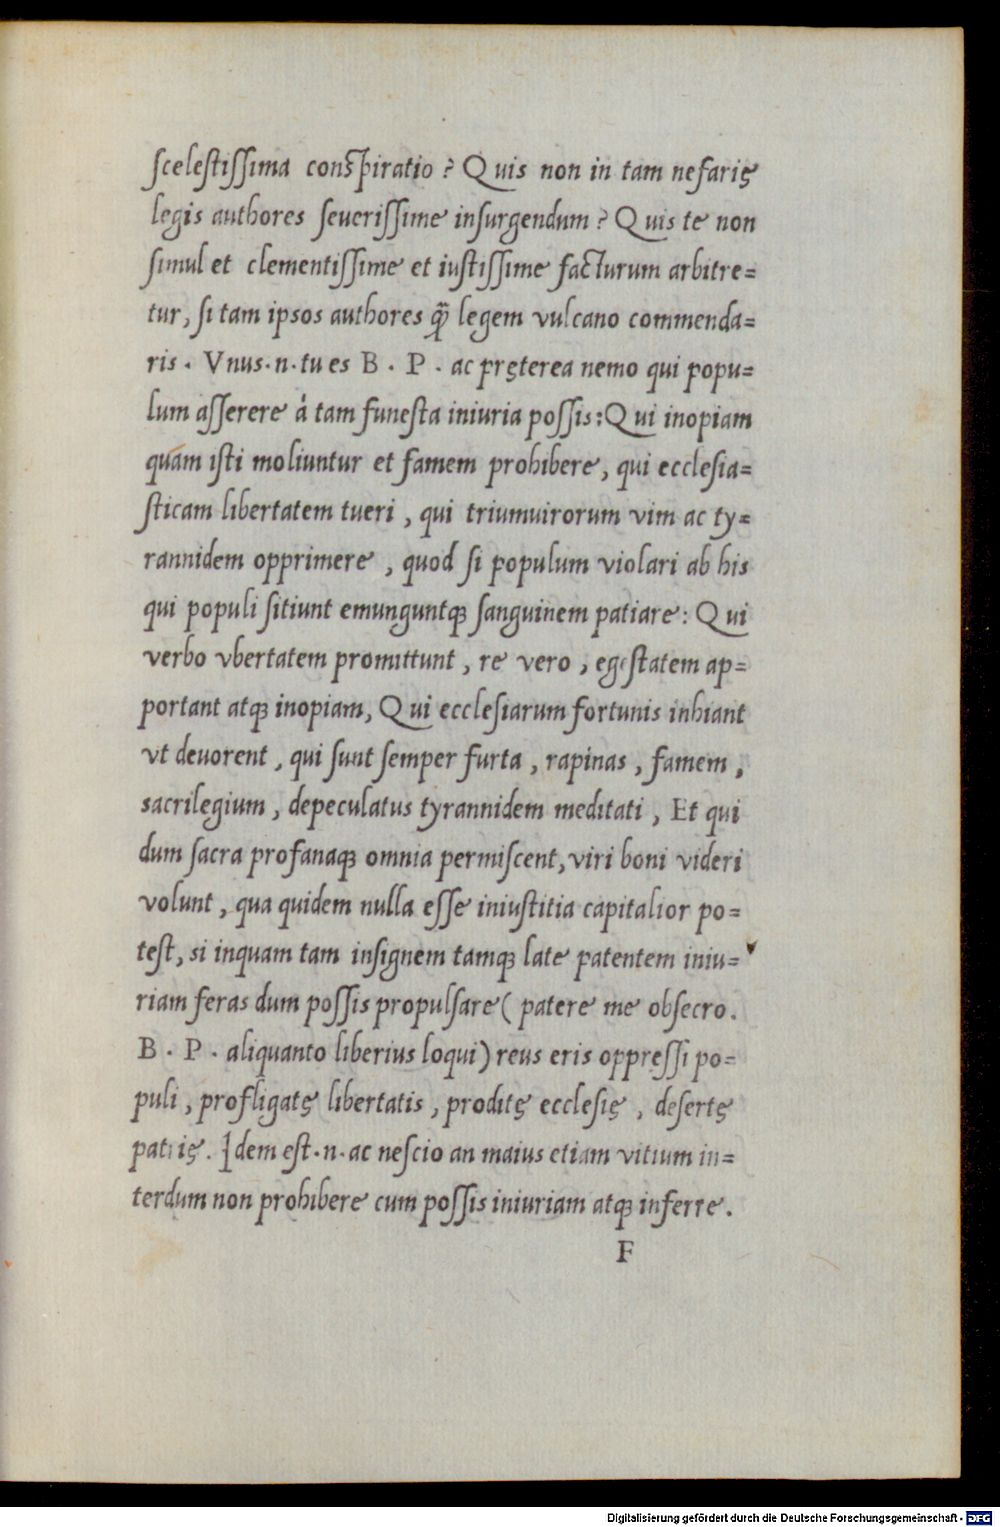 ſceleſtiſſima conſpiratio ? Quis non in tam nefarię
legis authores ſeueriſſime inſurgendum ? Quis te non
ſimul et clementiſſime et iuſtiſſime facturum arbitre=
tur, ſi tam ipsos authores q̃ȝ legem vulcano commenda=
ris . Vnus.n.tu es B . P . ac pręterea nemo qui popu=
lum aſſerere à tam funeſta iniuria poſſis : Qui inopiam
quam iſti moliuntur et famem prohibere, qui eccleſia=
ſticam libertatem tueri , qui triumuirorum vim ac ty=
rannidem opprimere , quod ſi populum violari ab his
qui populi ſitiunt emunguntqȝ ſanguinem patiare : Qui
verbo vbertatem promittunt , re vero , egeſtatem ap=
portant atqȝ inopiam, Qui eccleſiarum fortunis inhiant
vt deuorent , qui ſunt ſemper furta , rapinas , famem ,
sacrilegium , depeculatus tyrannidem meditati , Et qui
dum ſacra profanaqȝ omnia permiſcent, viri boni videri
volunt , qua quidem nulla eſſe iniuſtitia capitalior po=
teſt, si inquam tam inſignem tamqȝ late patentem iniu=
riam feras dum poſſis propulſare ( patere me obſecro .
B . P . aliquanto liberius loqui ) reus eris oppreſſi po=
puli , profligatę libertatis , proditę eccleſię , deſertę
patrię . Idem eſt.n.ac neſcio an maius etiam vitium in=
terdum non prohibere cum poſſis iniuriam atqȝ inferre .
F
Digitalisierung gefördert durch die Deutsche Forschungsgemeinschaft - DFG